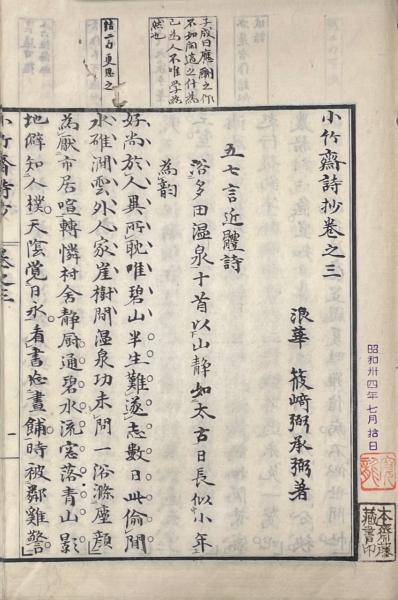 小竹齋詩抄卷之三
浪華 筱崎弼承弼著
五七言近體詩
浴多田温泉十首以山静如太古日長似小年
為韵
好尚於人異所耽唯碧山半生難遂志數日此偷閒
水碓澗雲外人家崖樹間温泉功未問一浴滌塵顔
為厭市居喧轉憐村舍静厨通碧水流窓落青山影
地僻知人樸天陰覺日永看書忘晝餔時被鄰雞警
小竹齋詩抄 卷之三 一
子成曰應酬之作
不如陶適之什
已為人不唯學為
然也
結二句更思之
昭和卅四年七月拾日
藏書印